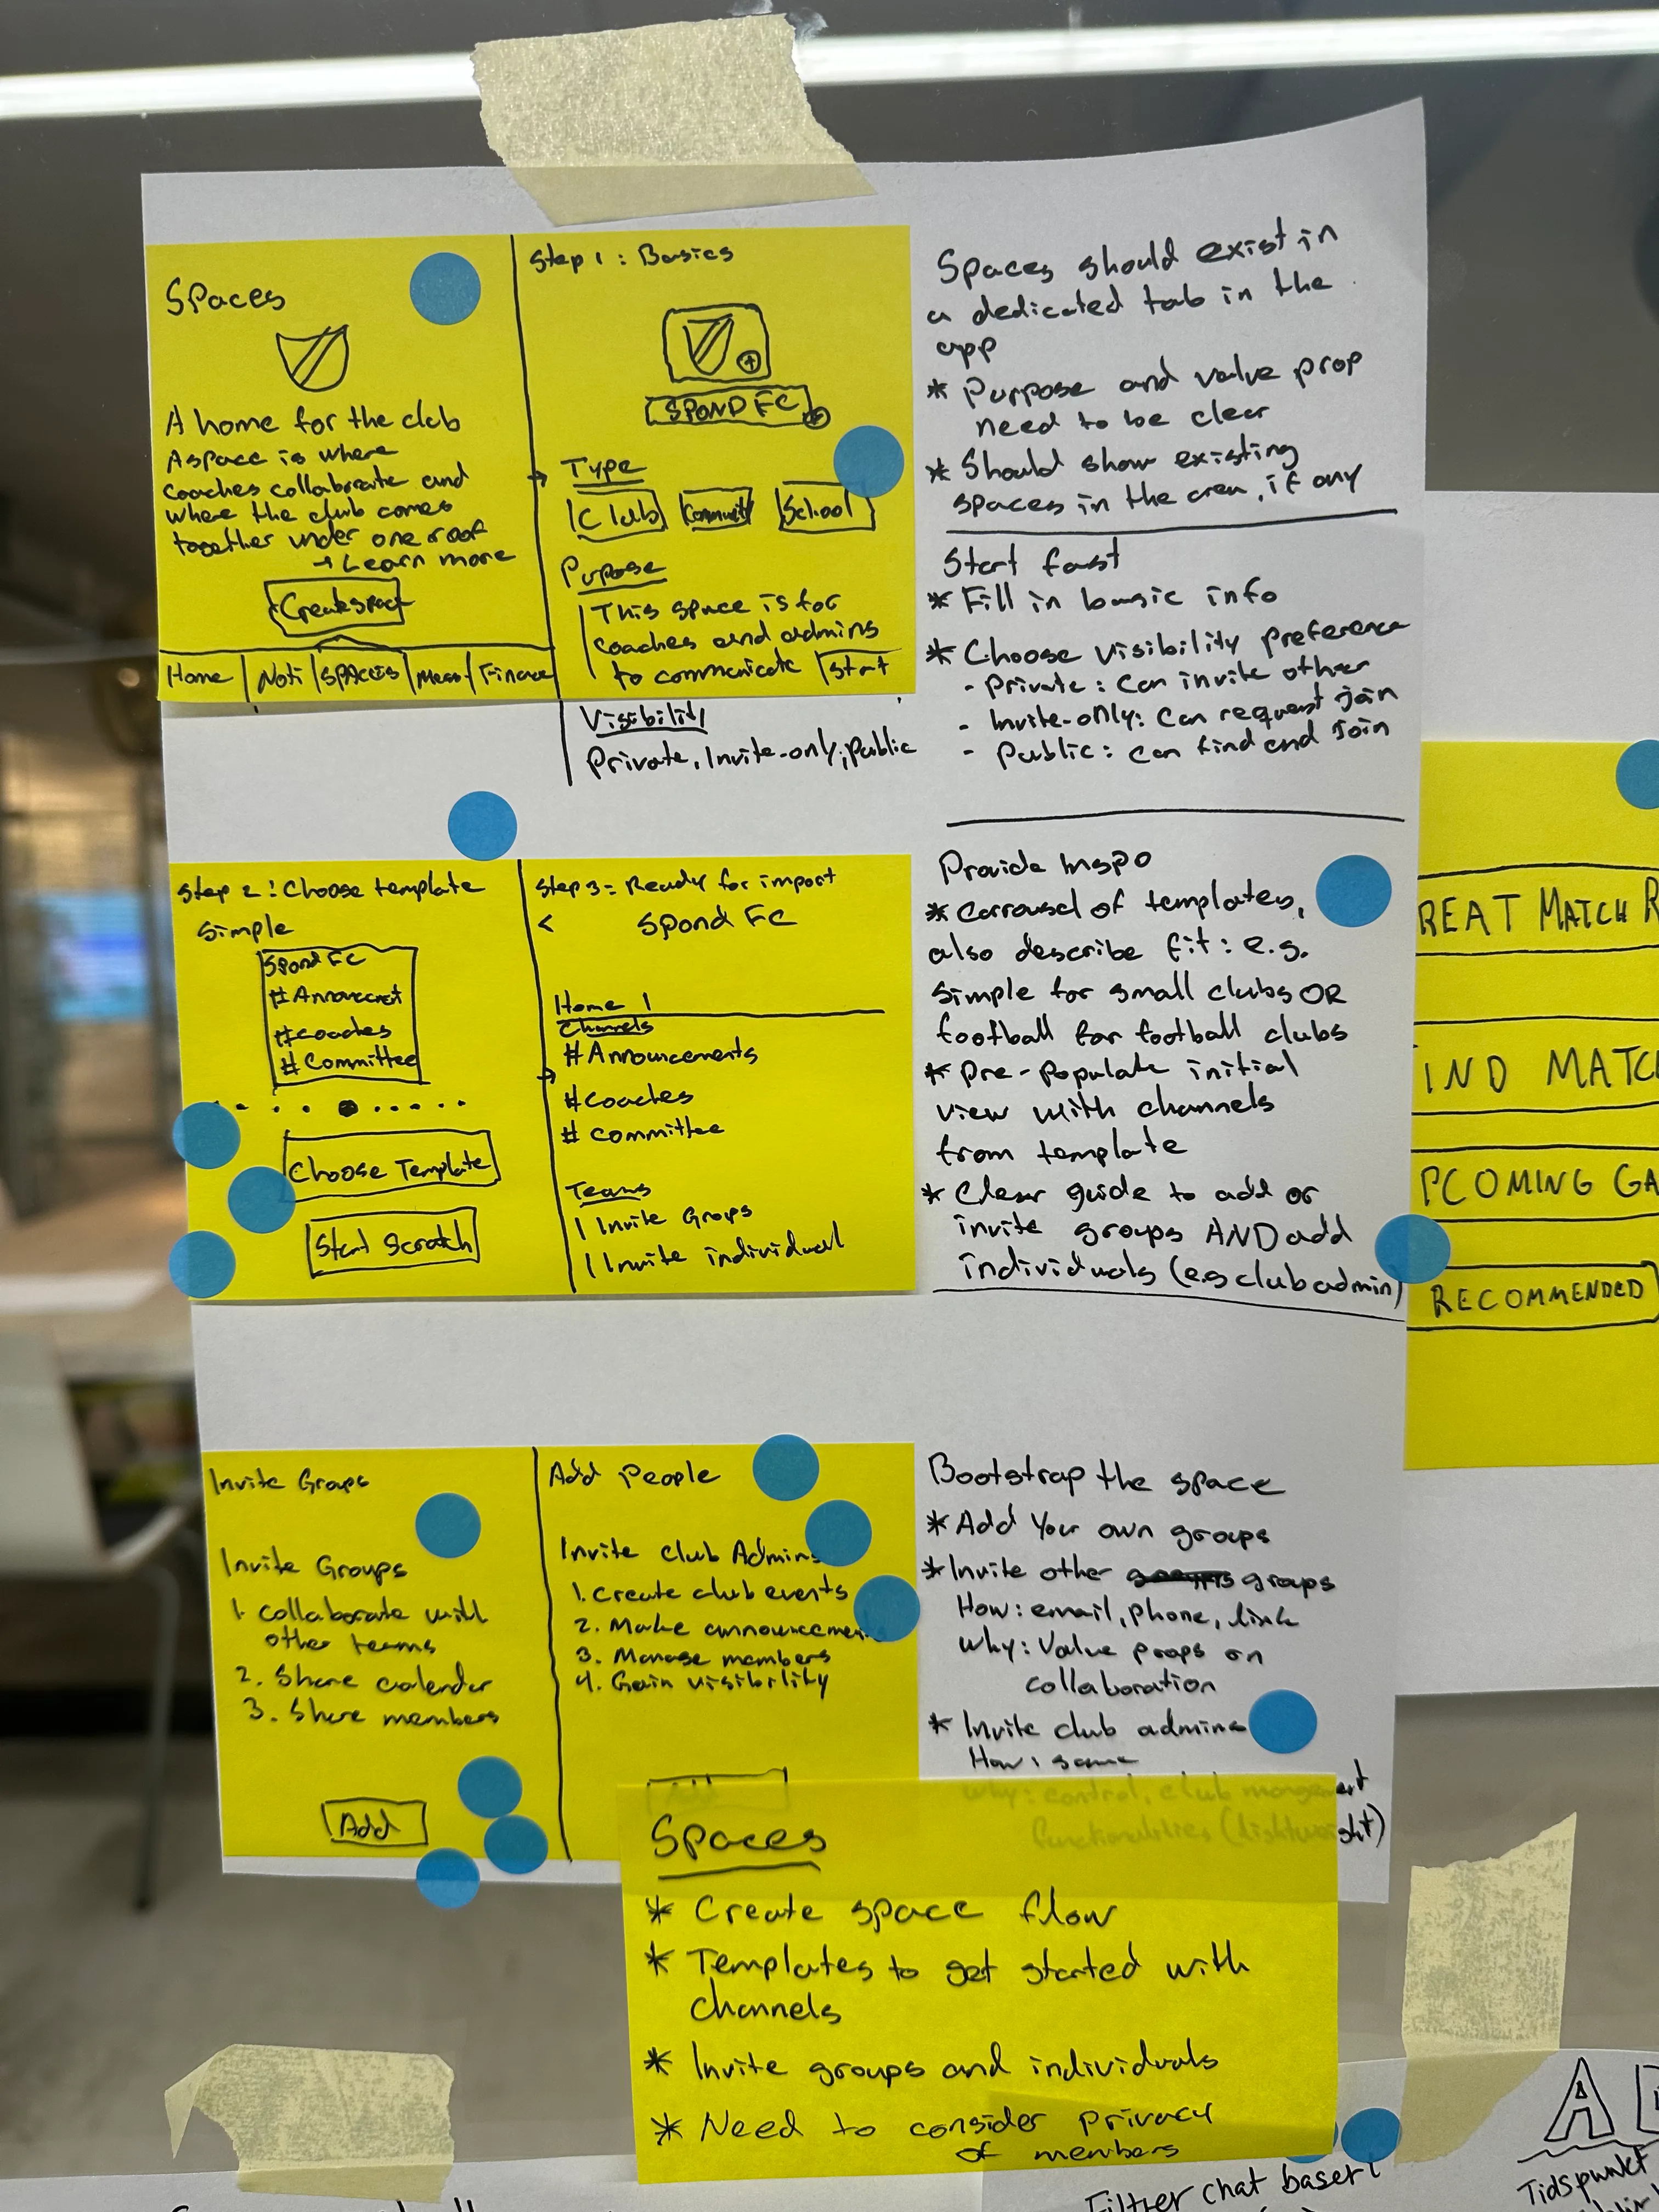 Spaces
A home for the club
A space is where
coaches collaborate and
where the club comes
together under one roof
→ Learn more
Create space
Home | Noti | SPAces | Mess | Finance
Step 1 : Basics
SPOND FC
Type
Club Community School
Pupose
This space is for
coaches and admins
to communicate
Start
Visibility
Private, Invite-only, Public
Spaces should exist in
a dedicated tab in the
app
* Purpose and value prop
need to be clear
* Should show existing
spaces in the area, if any
Start fast
* Fill in basic info
* Choose visibility preference
- Private : Can invite other
- Invite-only: Can request join
- Public : can find and Join
Step 2 : Choose template
Simple
Spond FC
#coaches
# Committee
Choose Template
Start Scratch
Step 3 = Ready for import
< Spond FC
Home
Channels
# Announcements
#coaches
# committee
Teams
| Invite Groups
| Invite individual
Provide Inspo
* Carrousel of templates,
also describe fit : e.g.
Simple for small clubs OR
football for football clubs
* Pre-Populate initial
view with channels
from template
* Clear guide to add or
invite groups AND add
individuals (e.g club admin)
REAT MATCH R
IND MATC
PCOMING GA
RECOMMENDED
Invite Groups
Invite Groups
1. Collaborate with
other teams
2. Share calender
3. Share members
Add
Add People
Invite club Admins
1. Create club events
2. Make announcemen
3. Manage members
4. Gain visibility
Add
Bootstrap the space
* Add Your own groups
* Invite other groups
How : email, phone, link
Why : Value props on
collaboration
* Invite club admins
How : same
Why : control, club mangement
functionalities (lightweight)
Spaces
* Create space flow
* Templates to get started with
channels
* Invite groups and individuals
* Need to consider privacy
of members
Filtrer chat basert
Tidspunkt